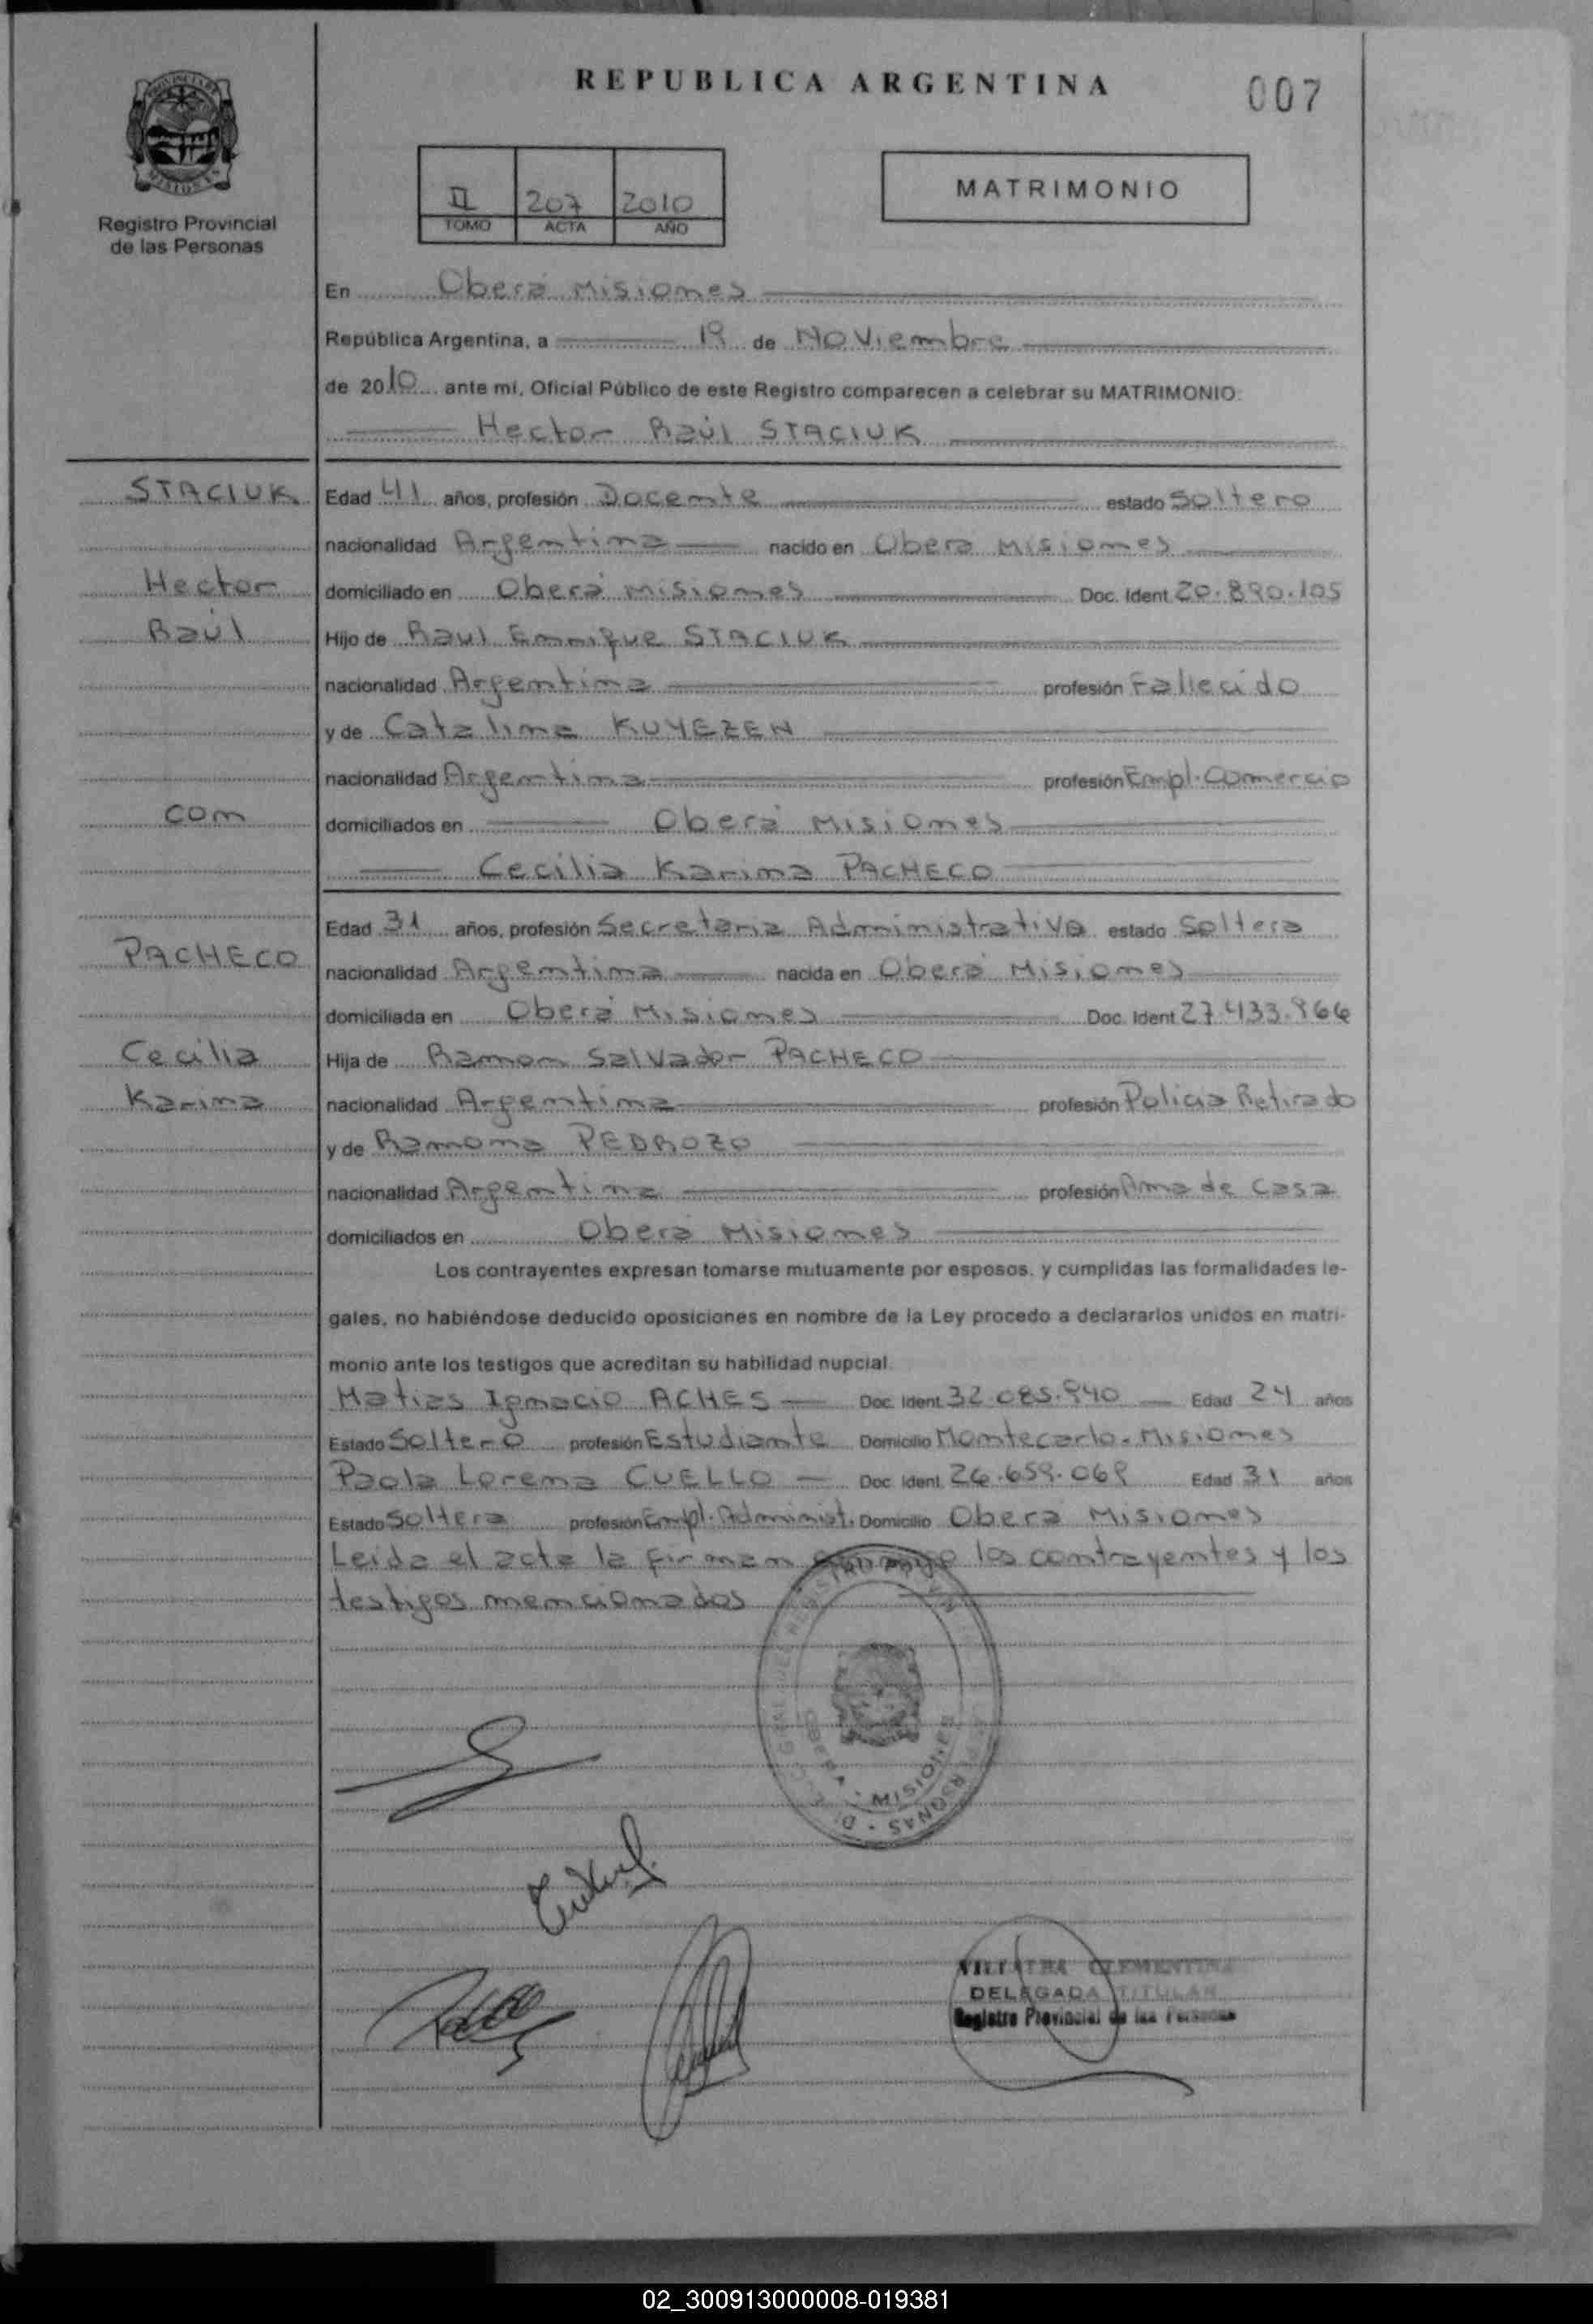 REPUBLICA ARGENTINA
007
PROVINCIA DE
MISIONES
Registro Provincial
de las Personas
II 207 2010
TOMO ACTA AÑO
MATRIMONIO
En Oberá Misiones
República Argentina, a 19 de Noviembre
de 2010 ante mi, Oficial Público de este Registro comparecen a celebrar su MATRIMONIO:
Hector Raúl STACIUK
STACIUK
Hector
Raúl
con
PACHECO
Cecilia
Karina
Edad 41 años, profesión Docente estado Soltero
nacionalidad Argentina nacido en Oberá Misiones
domiciliado en Oberá Misiones Doc. Ident 20.890.105
Hijo de Raul Enrrique STACIUK
nacionalidad Argentina profesión Fallecido
y de Catalina KUYEZEN
nacionalidad Argentina profesión Empl. Comercio
domiciliados en Oberá Misiones
Cecilia Karina PACHECO
Edad 31 años, profesión Secretaria Administrativa estado Soltera
nacionalidad Argentina nacida en Oberá Misiones
domiciliada en Oberá Misiones Doc. Ident 27.433.966
Hija de Ramon Salvador PACHECO
nacionalidad Argentina profesión Policia Retirado
y de Ramona PEDROZO
nacionalidad Argentina profesión Ama de Casa
domiciliados en Oberá Misiones
Los contrayentes expresan tomarse mutuamente por esposos, y cumplidas las formalidades le-
gales, no habiéndose deducido oposiciones en nombre de la Ley procedo a declararlos unidos en matri-
monio ante los testigos que acreditan su habilidad nupcial.
Matias Ignacio ACHES Doc. Ident. 32.085.940 Edad 24 años
Estado Soltero profesión Estudiante Domicilio Montecarlo. Misiones
Paola Lorena CUELLO Doc. Ident. 26.659.069 Edad 31 años
Estado Soltera profesión Empl. Administ. Domicilio Oberá Misiones
Leida el acta la firman conmigo los contrayentes y los
testigos mencionados
OBERA - MISIONES
PERSONAS
CLEMENTINA
DELEGADA TITULAR
Registro Provincial de las Personas
02_300913000008-019381